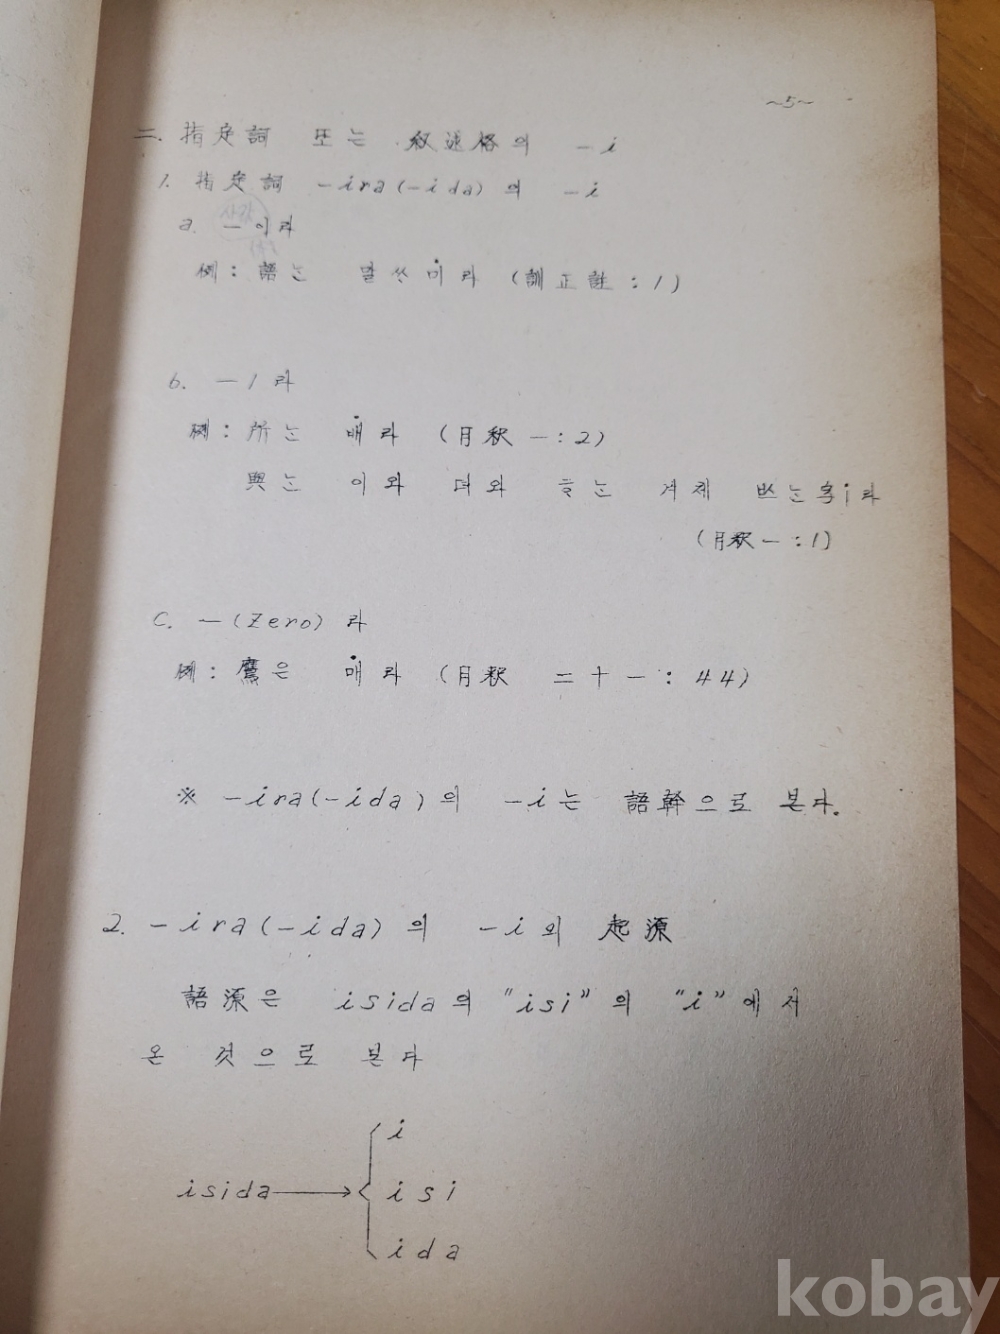 ~5~
二. 指定詞 또는 叙述格의 -i
1. 指定詞 -ira(-ida)의 -i
a. -이라
例: 語는 말쓰미라 (訓正註:1)
b. -ㅣ라
例: 所는 배라 (月釈一:2)
與는 이와 뎌와 ᄒᆞ는 겨체 ᄡᅳ는 字ㅣ라
(月釈一:1)
C. -(Zero)라
例: 鷹은 매라 (月釈 二十一:44)
※ -ira(-ida)의 -i는 語幹으로 본다.
2. -ira(-ida)의 -i의 起源
語源은 isida의 "isi"의 "i"에서
온 것으로 본다
i
isida → isi
ida
kobay